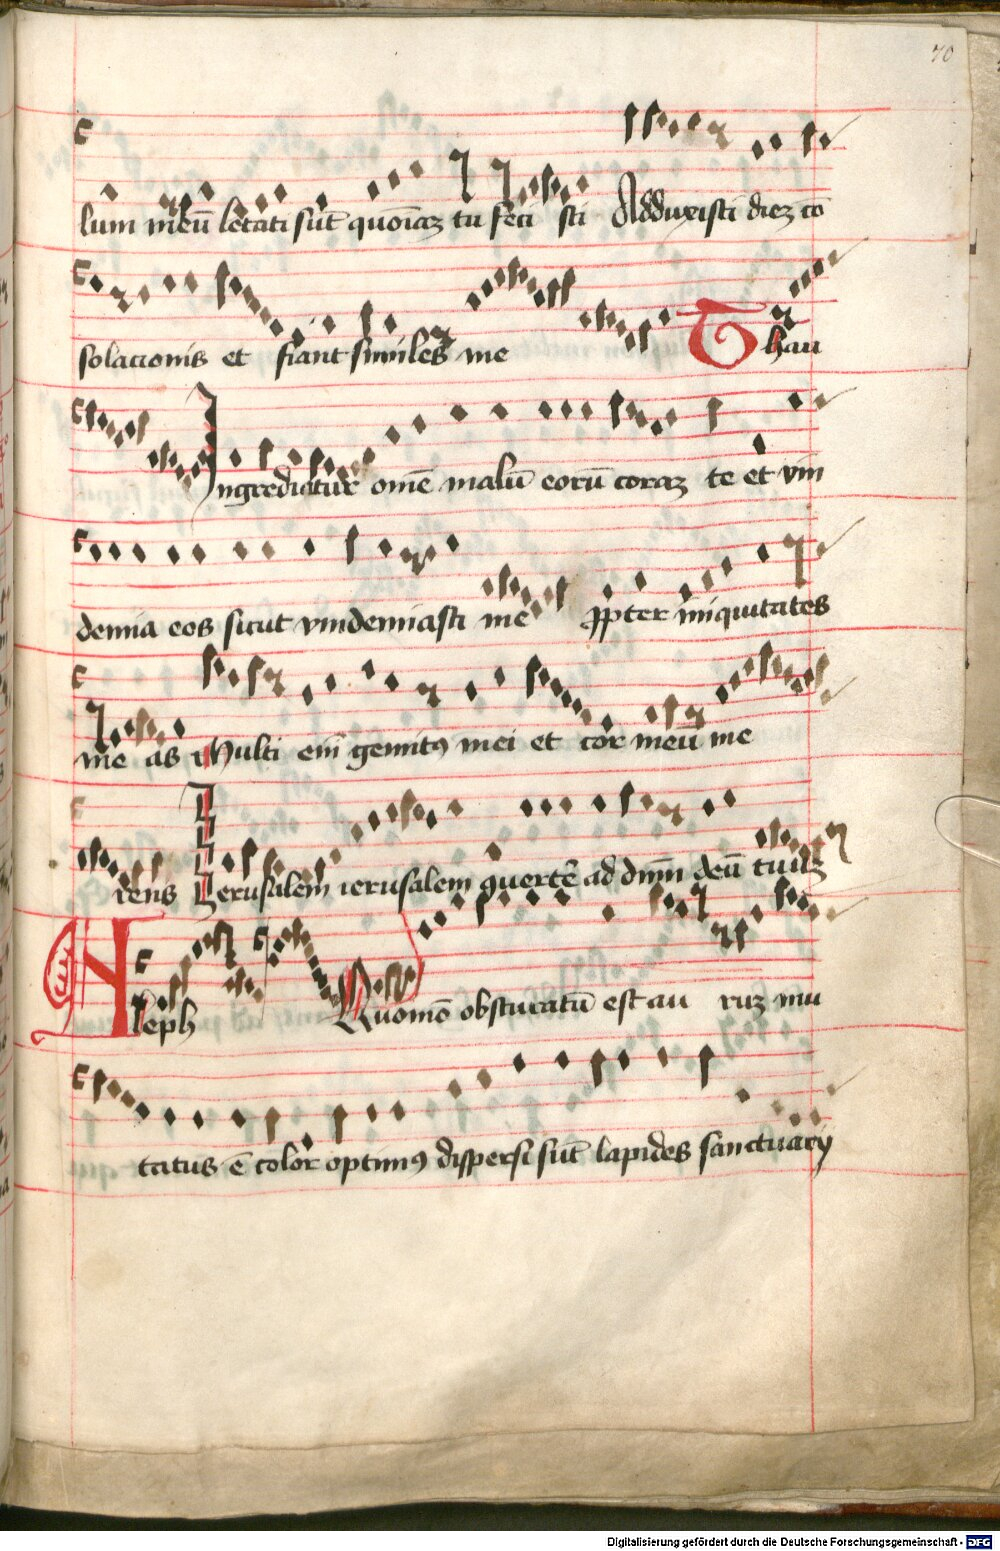 70
lum meū letati sūt quoīaz tu feci sti Adduxisti diez cō
solacionis et fiant similes me Thau
Ingrediatur om̄e malū eorū coraz te et vin
demia eos sicut vindemiasti me ꝓpter iniquitates
me as Multi em̄ gemitꝯ mei et cor meū me
rens Ierusalem ierusalem ꝯuertē ad dn̄m deū tuūz
Aleph Quomō obscuratū est au ruz mu
tatus ē color optimꝯ dispersi sūt lapides sanctuarij
Digitalisierung gefördert durch die Deutsche Forschungsgemeinschaft - DFG